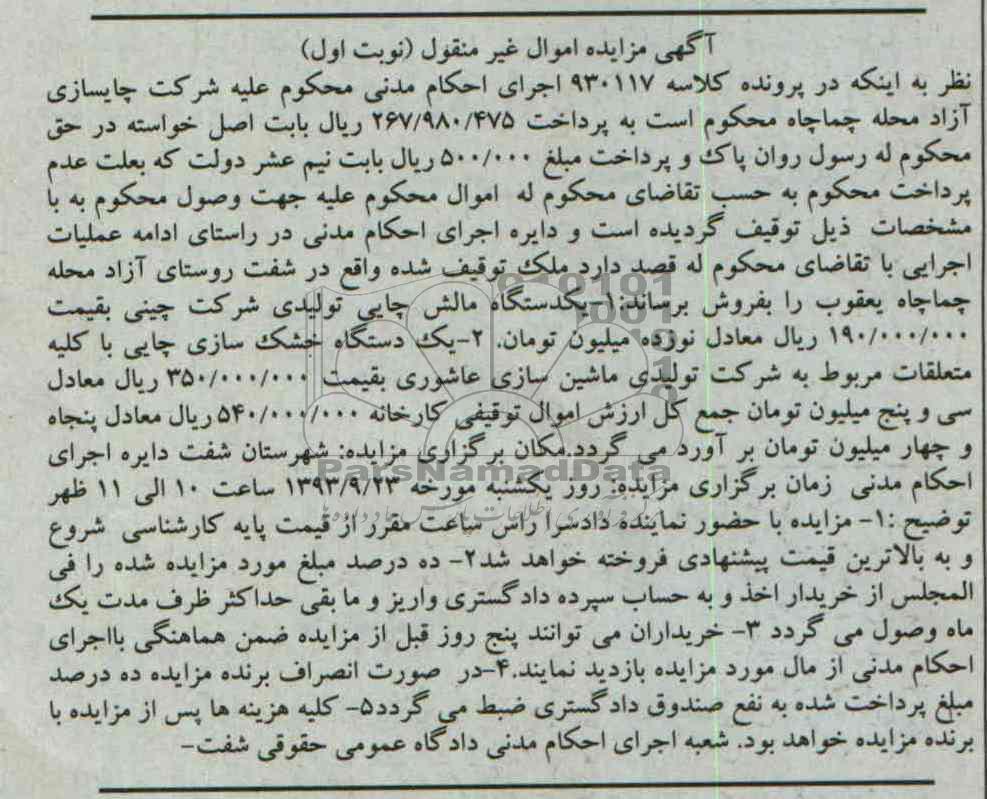 آگهی مزایده اموال غیر منقول (نوبت اول)
نظر به اینکه در پرونده کلاسه ۹۳۰۱۱۷ اجرای احکام مدنی محکوم علیه شرکت چایسازی
آزاد محله چماچاه محکوم است به پرداخت ۲۶۷/۹۸۰/۴۷۵ ریال بابت اصل خواسته در حق
محکوم له رسول روان پاک و پرداخت مبلغ ۵۰۰/۰۰۰ ریال بابت نیم عشر دولت که بعلت عدم
پرداخت محکوم به حسب تقاضای محکوم له اموال محکوم علیه جهت وصول محکوم به با
مشخصات ذیل توقیف گردیده است و دایره اجرای احکام مدنی در راستای ادامه عملیات
اجرایی با تقاضای محکوم له قصد دارد ملک توقیف شده واقع در شفت روستای آزاد محله
چماچاه یعقوب را بفروش برساند:۱-یکدستگاه مالش چایی تولیدی شرکت چینی بقیمت
۱۹۰/۰۰۰/۰۰۰ ریال معادل نوزده میلیون تومان. ۲-یک دستگاه خشک سازی چایی با کلیه
متعلقات مربوط به شرکت تولیدی ماشین سازی عاشوری بقیمت ۳۵۰/۰۰۰/۰۰۰ ریال معادل
سی و پنج میلیون تومان جمع کل ارزش اموال توقیفی کارخانه ۵۴۰/۰۰۰/۰۰۰ ریال معادل پنجاه
و چهار میلیون تومان بر آورد می گردد.مکان برگزاری مزایده: شهرستان شفت دایره اجرای
احکام مدنی زمان برگزاری مزایده: روز یکشنبه مورخه ۱۳۹۳/۹/۲۳ ساعت ۱۰ الی ۱۱ ظهر
توضیح :۱- مزایده با حضور نماینده دادسرا راس ساعت مقرر از قیمت پایه کارشناسی شروع
و به بالاترین قیمت پیشنهادی فروخته خواهد شد۲- ده درصد مبلغ مورد مزایده شده را فی
المجلس از خریدار اخذ و به حساب سپرده دادگستری واریز و ما بقی حداکثر ظرف مدت یک
ماه وصول می گردد ۳- خریداران می توانند پنج روز قبل از مزایده ضمن هماهنگی بااجرای
احکام مدنی از مال مورد مزایده بازدید نمایند.۴-در صورت انصراف برنده مزایده ده درصد
مبلغ پرداخت شده به نفع صندوق دادگستری ضبط می گردد۵- کلیه هزینه ها پس از مزایده با
برنده مزایده خواهد بود. شعبه اجرای احکام مدنی دادگاه عمومی حقوقی شفت-
ParsNamadData